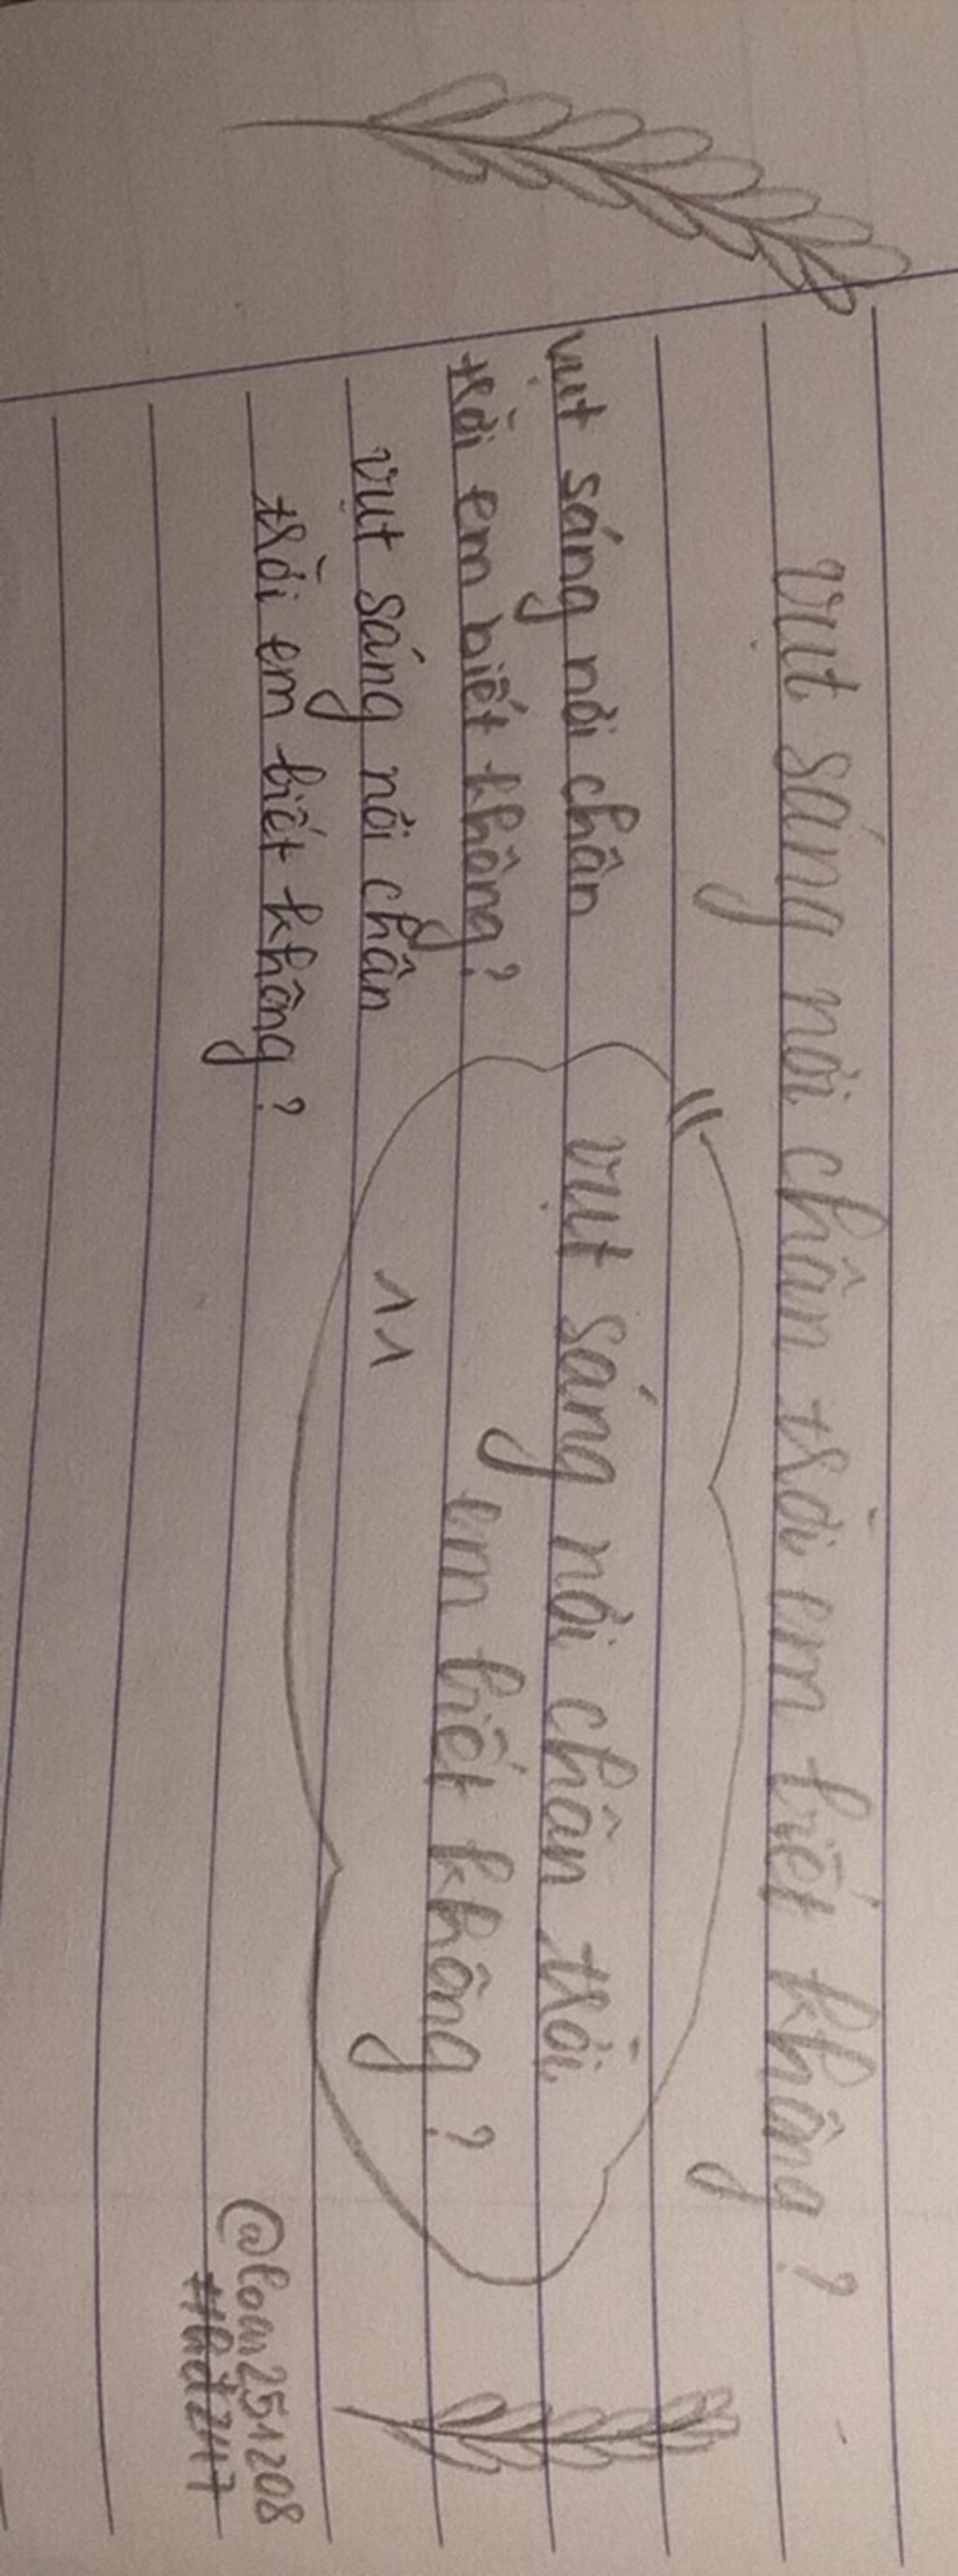 vụt sáng nơi chân trời em biết không?
vụt sáng nơi chân
trời em biết không?
vụt sáng nơi chân
trời em biết không?
"vụt sáng nơi chân trời
em biết không?
"
@loan251208